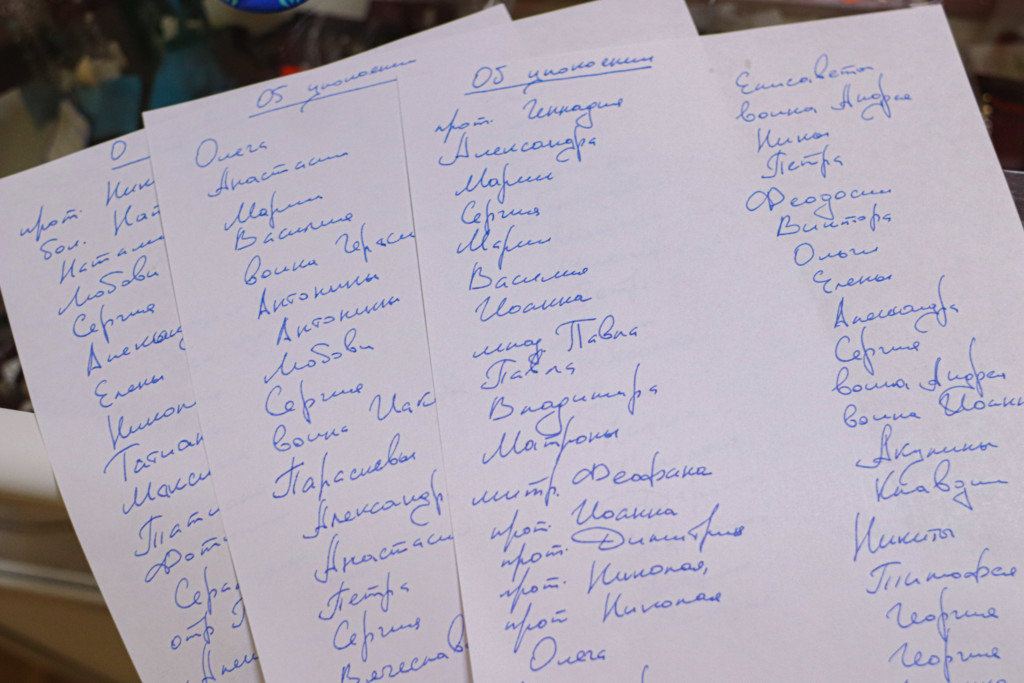 О
прот.
бол.
Любови
Сергия
Елены
отр
Об упокоении
Олега
Анастасии
Марии
Василия
воина
Антонины
Антонины
Любови
Сергия
воина
Параскевы
Петра
Сергия
Об упокоении
прот. Геннадия
Александра
Марии
Сергия
Марии
Василия
Иоанна
млад. Павла
Павла
Владимира
Матроны
митр. Феофана
прот. Иоанна
прот. Димитрия
прот. Николая,
прот Николая
Олега
Елисаветы
воина Андрея
Нины
Петра
Феодосии
Виктора
Ольги
Елены
Александра
Сергия
воина Андрея
воина
Акулины
Клавдии
Никиты
Тимофея
Георгия
Георгия